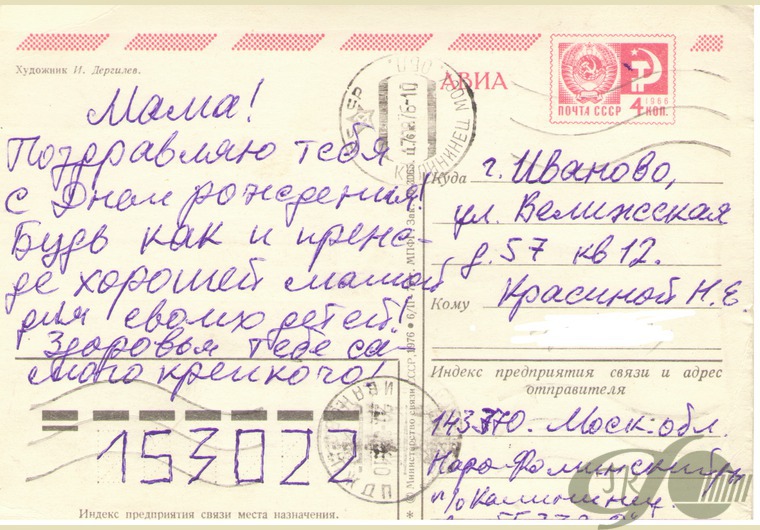 Художник И. Дергилев.
АВИА
ПОЧТА СССР
1966
4 КОП.
Мама!
Поздравляю тебя
с Днем рождения!
Будь как и преж-
де хорошей мамой
для своих детей!
Здоровья тебе са-
мого крепкого!
Куда г. Иваново,
ул. Велижская
д. 57 кв 12.
Кому Красиной Н. Е.
Индекс предприятия связи и адрес
отправителя
143370. Моск. обл.
Наро-Фоминский
п/о Калининец
153022
Индекс предприятия связи места назначения.
© Министерство связи СССР. 1976